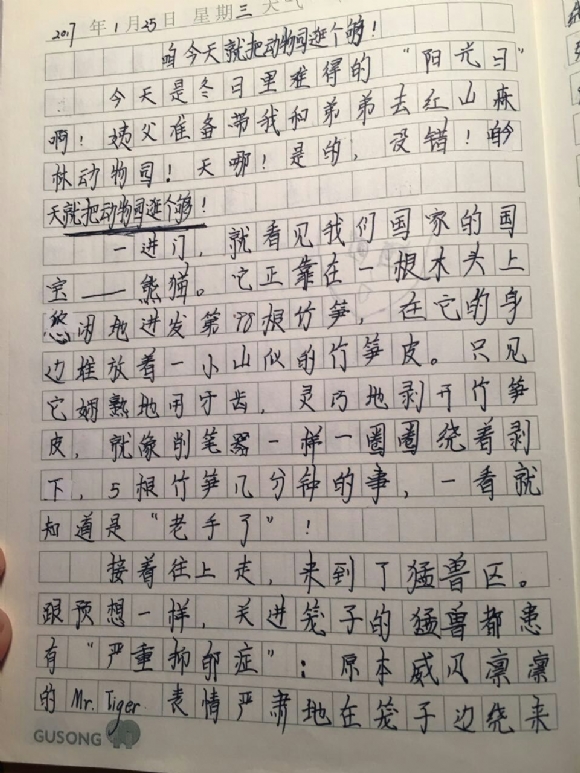 2017 年 1 月 25 日 星期三 天气
咱今天就把动物园逛个够！
今天是冬日里难得的“阳光日”
啊！姨父准备带我和弟弟去红山森
林动物园！天哪！是的，没错！咱今
天就把动物园逛个够！
一进门，就看见我们国家的国
宝——熊猫。它正靠在一根木头上
悠闲地进发第98根竹笋，在它的身
边堆放着一小山似的竹笋皮。只见
它娴熟地用牙齿，灵巧地剥开竹笋
皮，就像削笔器一样一圈圈绕着剥
下，5根竹笋几分钟的事，一看就
知道是“老手了”！
接着往上走，来到了猛兽区。
跟预想一样，关进笼子的猛兽都患
有“严重抑郁症”：原本威风凛凛
的 Mr. Tiger 表情严肃地在笼子边绕来
GUSONG